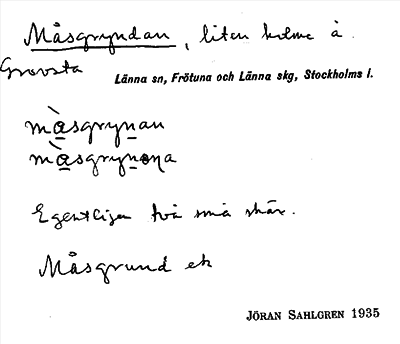 Måsgryndan, liten holme å
Grovsta
Länna sn, Frötuna och Länna skg, Stockholms l.
màsgrynan
màsgrynena
Egentligen två små skär.
Måsgrund ek
JÖRAN SAHLGREN 1935